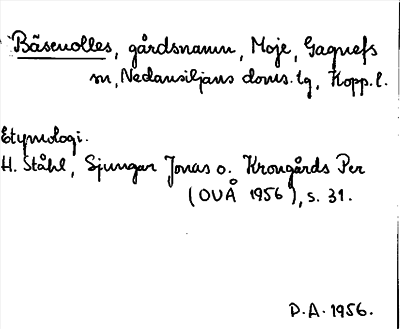 Bäsenolles, gårdsnamn, Moje, Gagnefs
sn, Nedansiljans doms. lg, Kopp. l.
Etymologi.
H. Ståhl, Sjungar Jonas o. Krongårds Per
(OUÅ 1956), s. 31.
D.A. 1956.